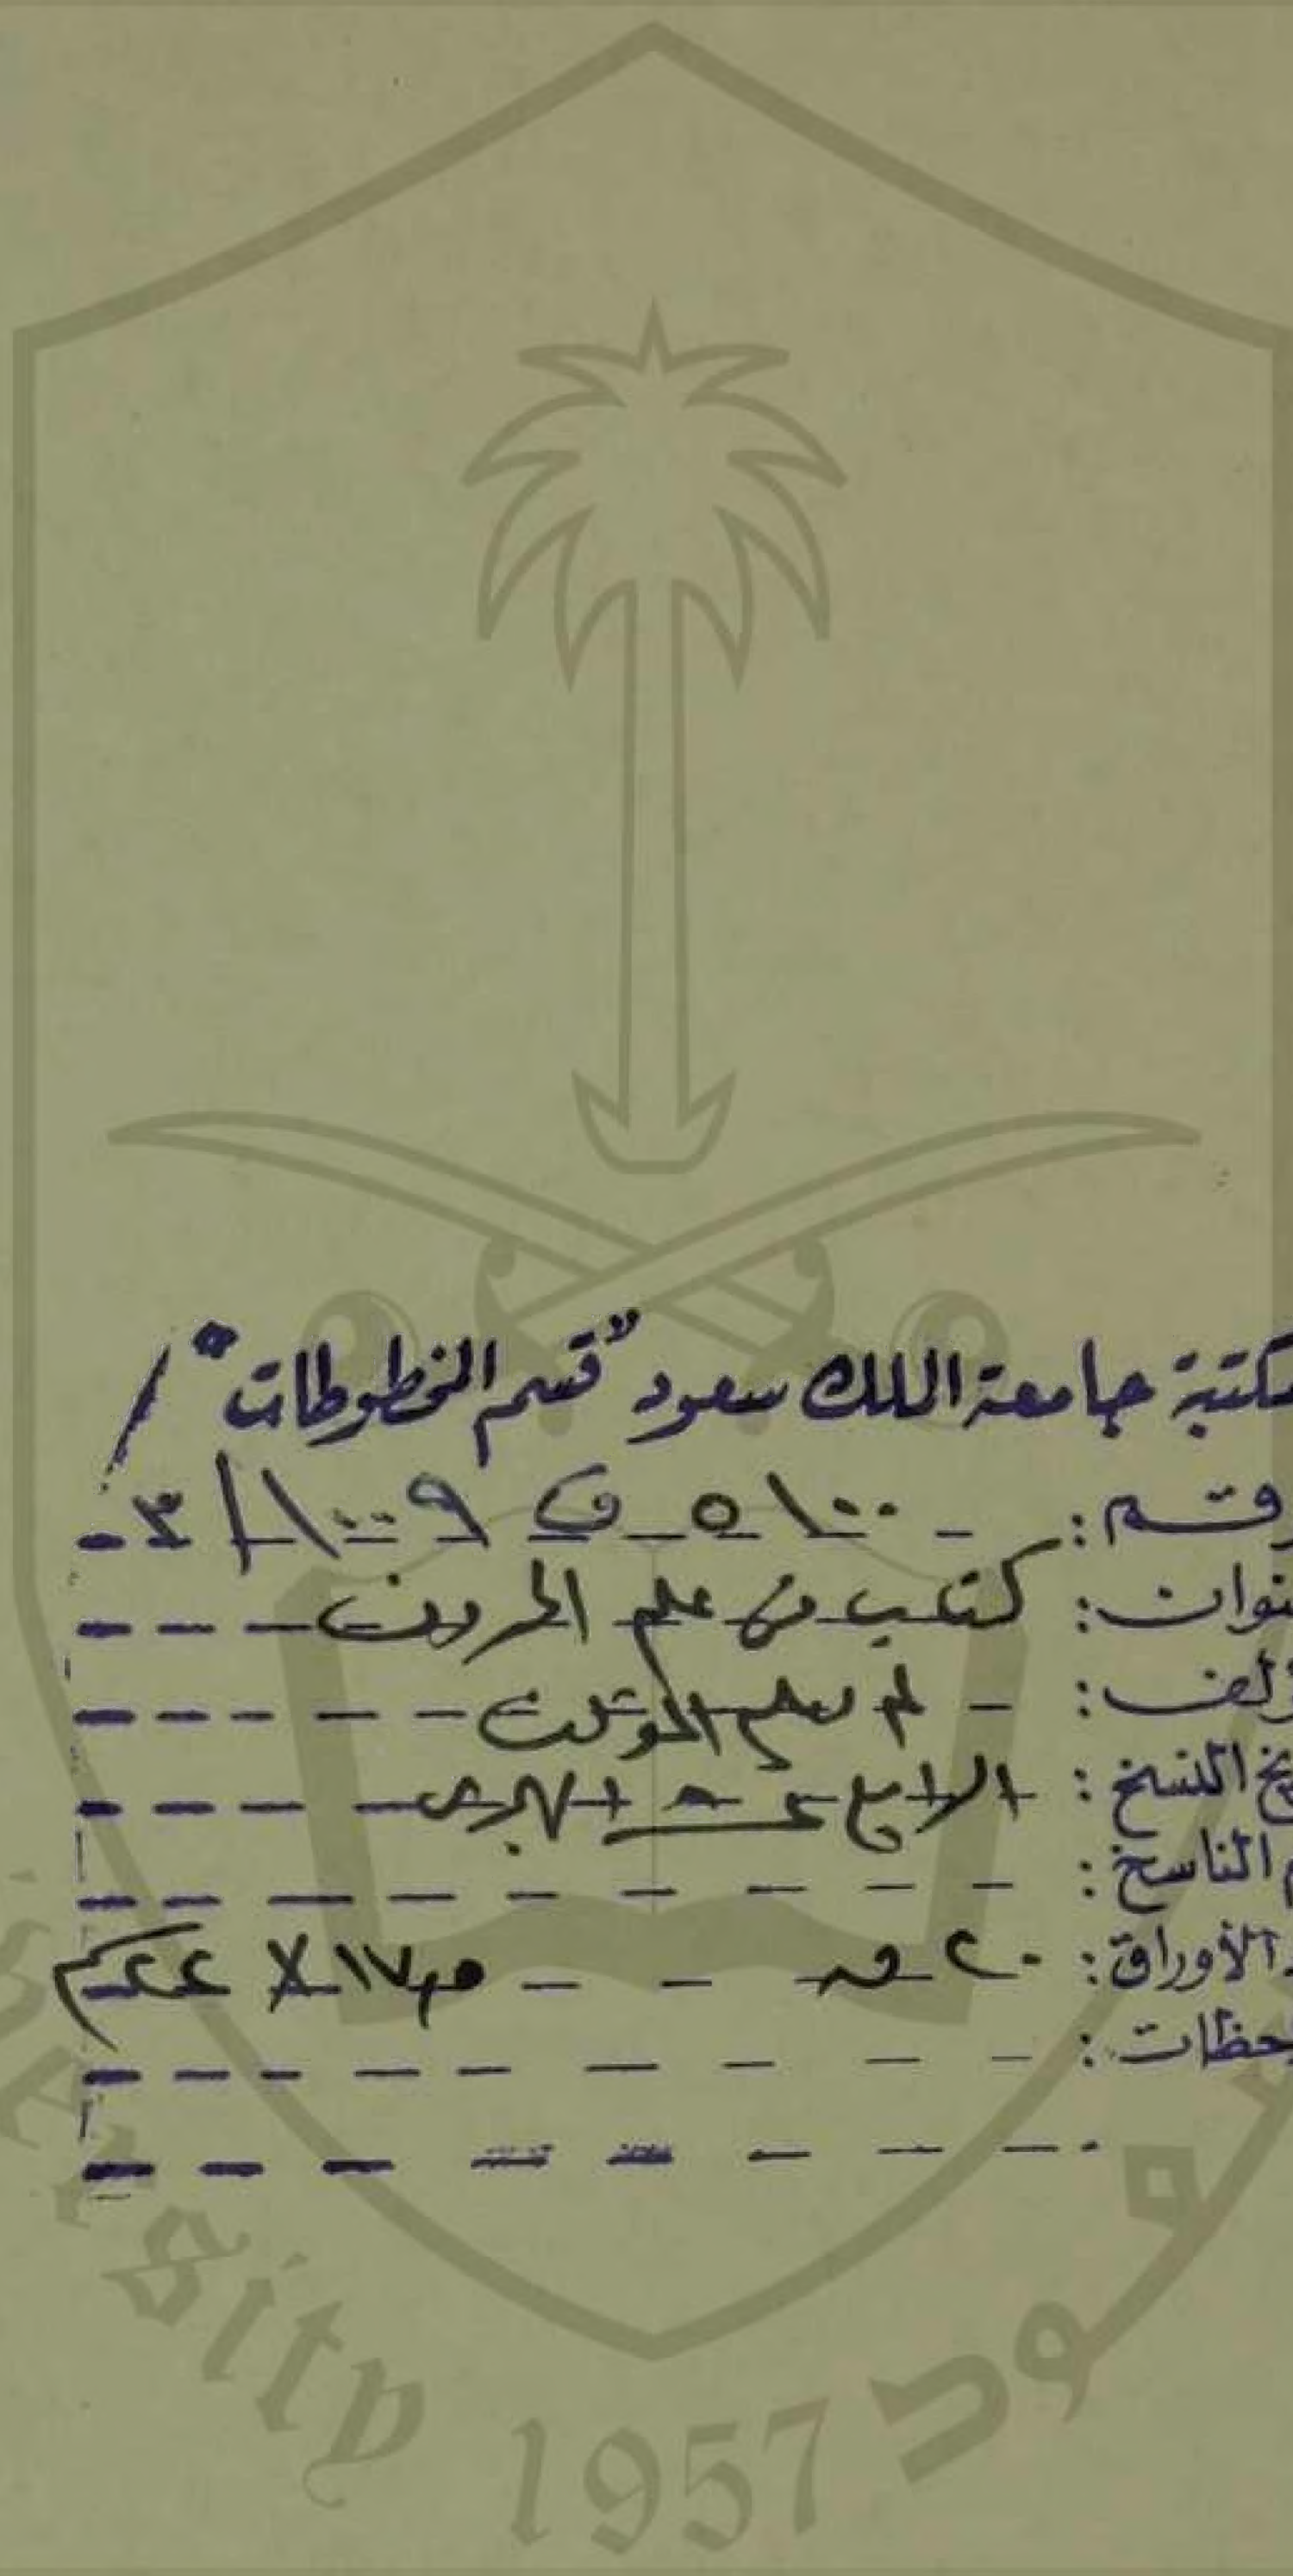 مكتبة جامعة الملك سعود "قسم المخطوطات"
رقم: ٥١٠٠ ف ١٠٠٩ / ٣
نوان: كتاب من علم الحروف
ؤلف: لم يعلم المؤلف
يخ النسخ: الرابع عشر الهجري
م الناسخ:
الأوراق: ٢٠ ق ١٧ X ٢٤ سم
حظات:
sity 1957 سعود